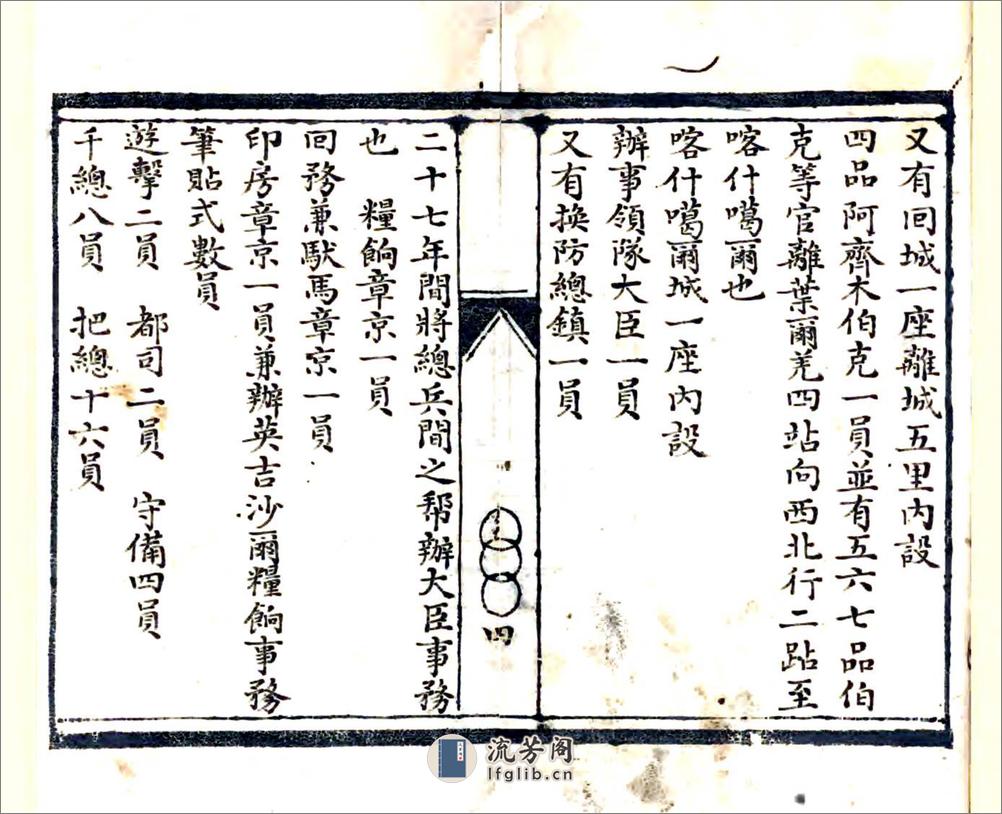 又有回城一座離城五里内設
四品阿齊木伯克一員並有五六七品伯
克等官離葉爾羌四站向西北行二跕至
喀什噶爾也
喀什噶爾城一座内設
辦事領隊大臣一員
又有換防總鎮一員
四
二十七年間將總兵間之帮辦大臣事務
也　糧餉章京一員
回務兼馱馬章京一員
印房章京一員兼辦英吉沙爾糧餉事務
筆貼式數員
遊擊二員　都司二員　守備四員
千總八員　把總十六員
流芳阁
lfglib.cn